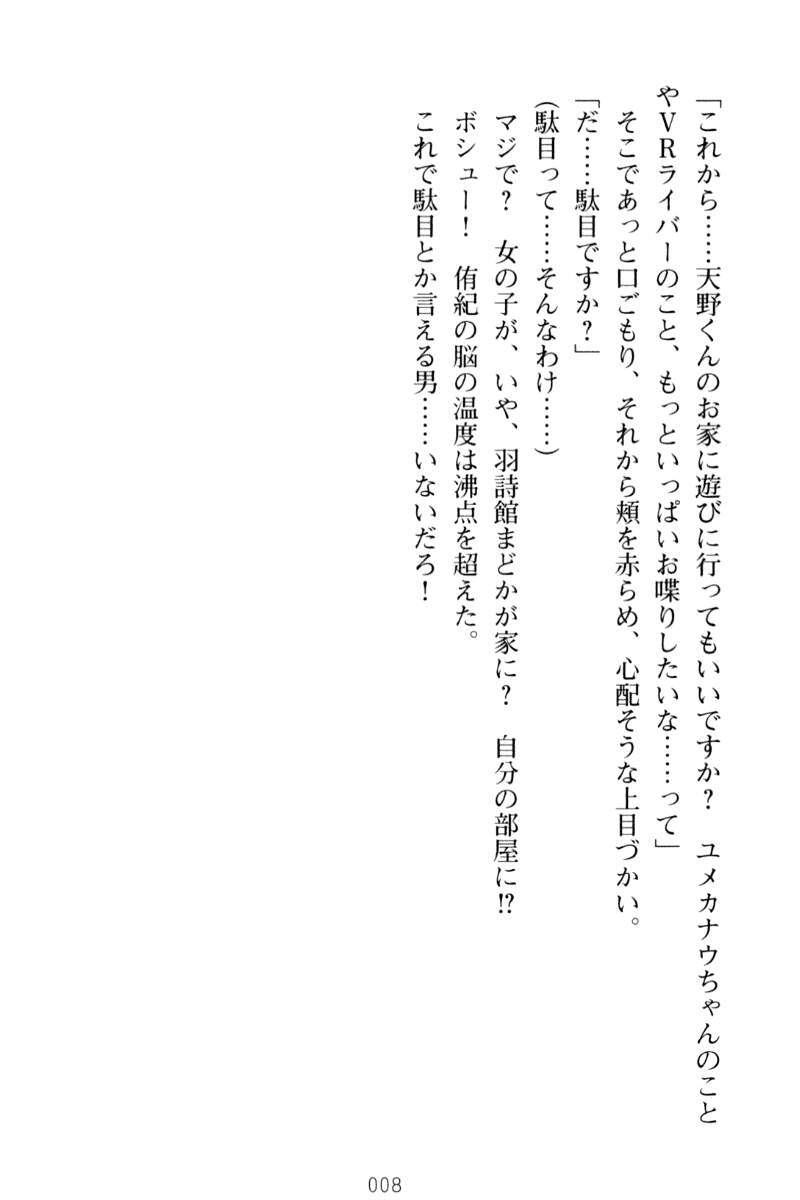 「これから……天野くんのお家に遊びに行ってもいいですか？　ユメカナウちゃんのこと
やVRライバーのこと、もっといっぱいお喋りしたいな……って」
　そこであっと口ごもり、それから頬を赤らめ、心配そうな上目づかい。
「だ……駄目ですか？」
（駄目って……そんなわけ……）
　マジで？　女の子が、いや、羽詩館まどかが家に？　自分の部屋に!?
　ボシュー！　侑紀の脳の温度は沸点を超えた。
　これで駄目とか言える男……いないだろ！
008